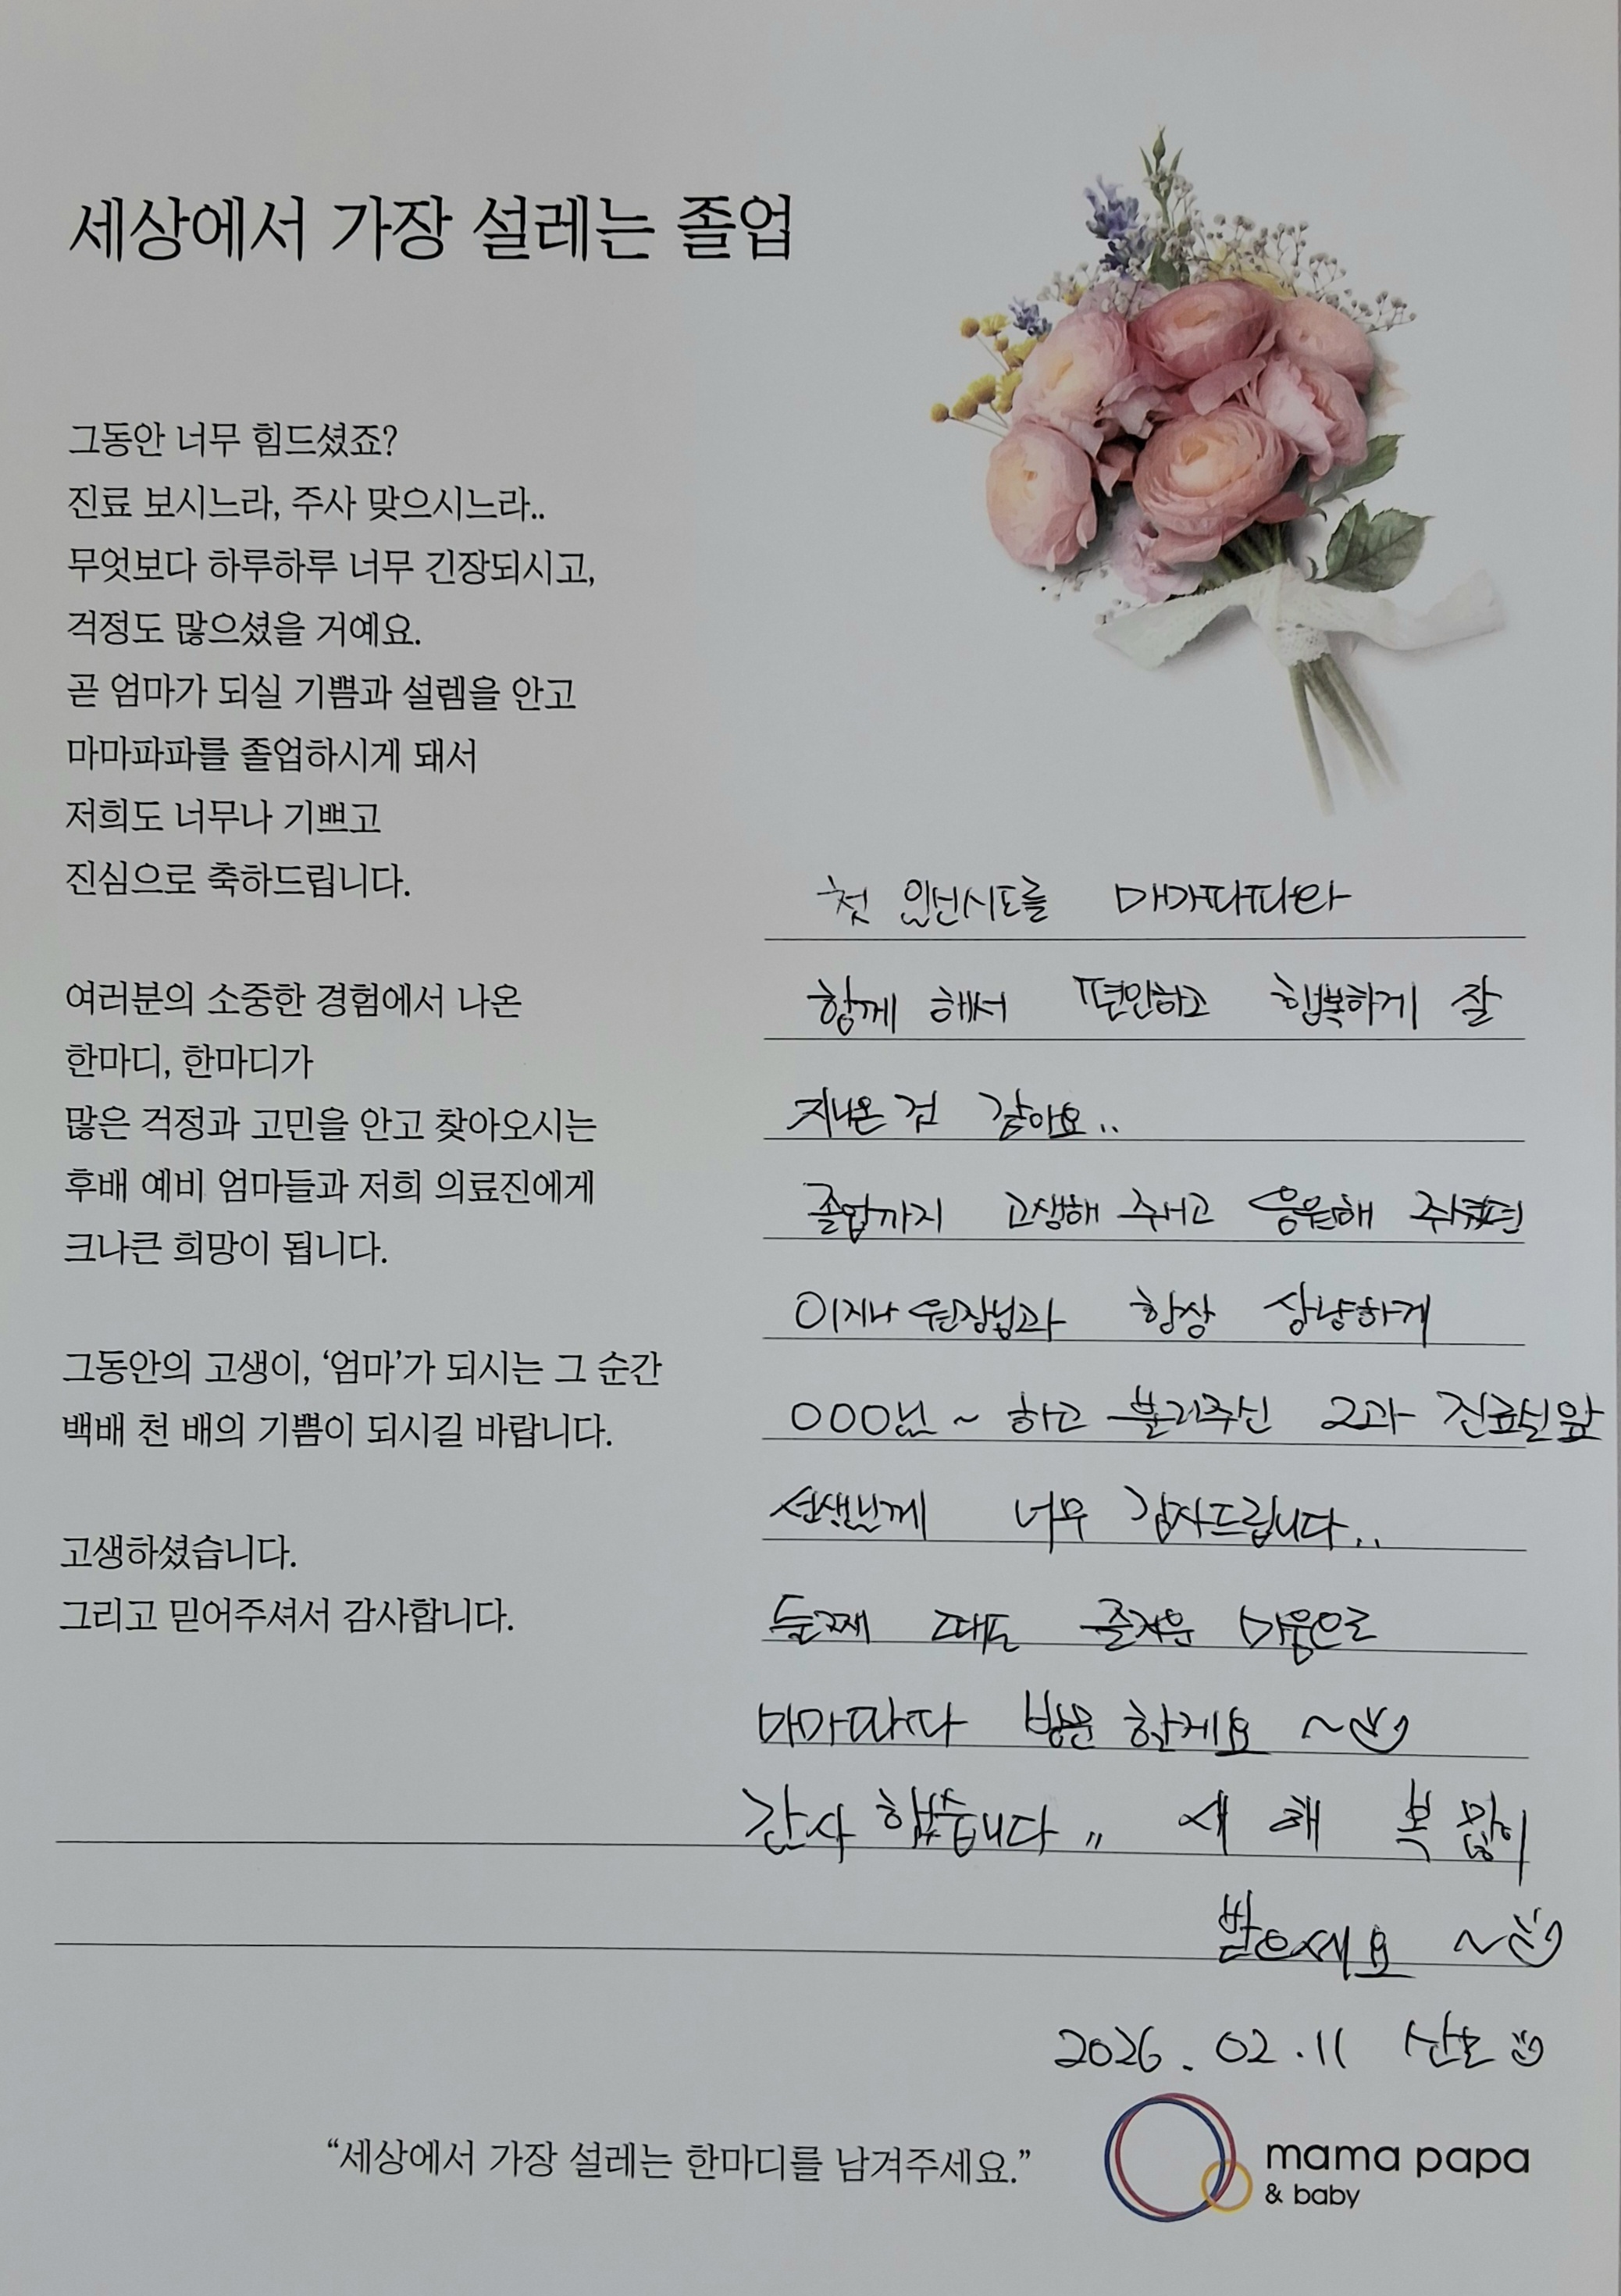 세상에서 가장 설레는 졸업
그동안 너무 힘드셨죠?
진료 보시느라, 주사 맞으시느라..
무엇보다 하루하루 너무 긴장되시고,
걱정도 많으셨을 거예요.
곧 엄마가 되실 기쁨과 설렘을 안고
마마파파를 졸업하시게 돼서
저희도 너무나 기쁘고
진심으로 축하드립니다.
여러분의 소중한 경험에서 나온
한마디, 한마디가
많은 걱정과 고민을 안고 찾아오시는
후배 예비 엄마들과 저희 의료진에게
크나큰 희망이 됩니다.
그동안의 고생이, ‘엄마’가 되시는 그 순간
백배 천 배의 기쁨이 되시길 바랍니다.
고생하셨습니다.
그리고 믿어주셔서 감사합니다.
첫 임신시도를 마마파파와
함께 해서 편안하고 행복하게 잘
지나온 것 같아요..
졸업까지 고생해 주시고 응원해 주셨던
이지나 원장님과 항상 상냥하게
OOO님~ 하고 불러주신 2과 진료실앞
선생님께 너무 감사드립니다..
둘째 때도 즐거운 마음으로
마마파파 방문 할게요 ~
감사 했습니다,, 새 해 복 많이
받으세요 ~
2026.02.11
“세상에서 가장 설레는 한마디를 남겨주세요.”
mama papa
& baby